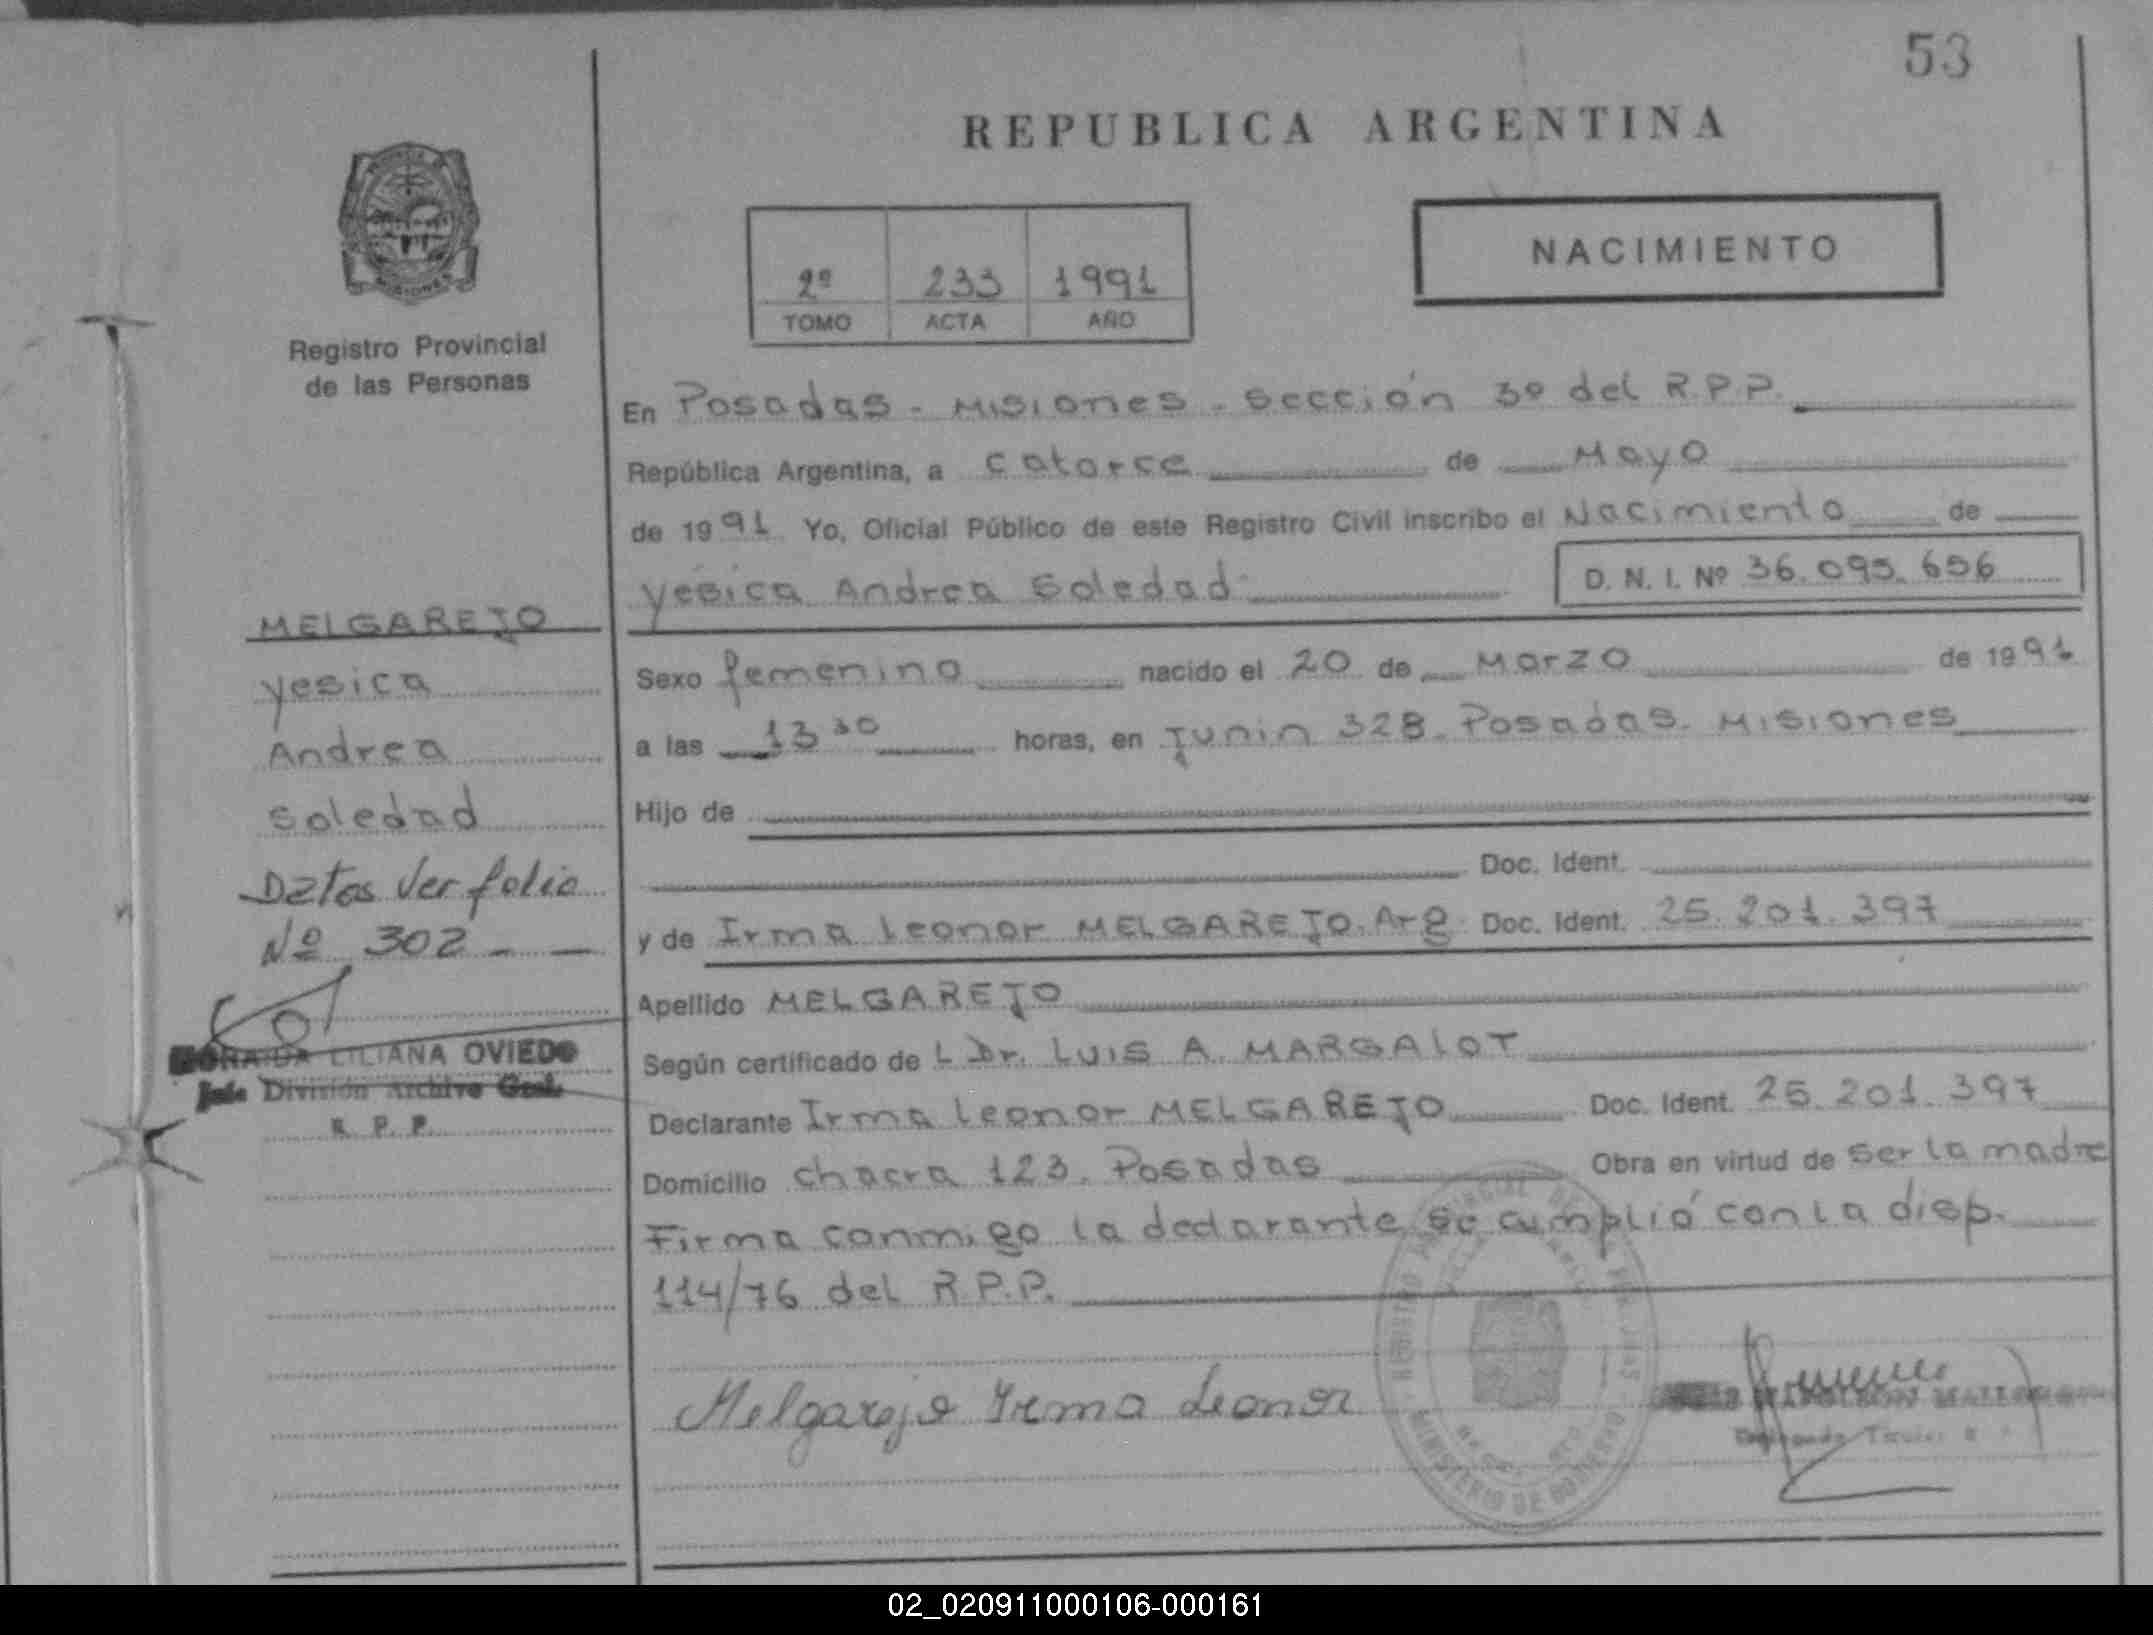 53
REPUBLICA ARGENTINA
NACIMIENTO
2º 233 1991
TOMO ACTA AÑO
Registro Provincial
de las Personas
MELGAREJO
Yesica
Andrea
Soledad
Datos Ver folio
Nº 302
LILIANA OVIEDO
Jefe División Archivo Gral.
R. P. P.
En Posadas - Misiones - Sección 3º del R.P.P.
República Argentina, a catorce de Mayo
de 1991 Yo, Oficial Público de este Registro Civil inscribo el Nacimiento de
Yesica Andrea Soledad D. N. I. Nº 36.095.656
Sexo femenino nacido el 20 de Marzo de 1991
a las 13 30 horas, en Junin 328. Posadas. Misiones
Hijo de
Doc. Ident.
y de Irma Leonor MELGAREJO. Arg Doc. Ident. 25.201.397
Apellido MELGAREJO
Según certificado de L Dr. LUIS A. MARGALOT
Declarante Irma Leonor MELGAREJO Doc. Ident. 25.201.397
Domicilio chacra 123. Posadas Obra en virtud de ser la madre
Firma conmigo la declarante, se cumplió con la disp.
114/76 del R.P.P.
Melgarejo Irma Leonor
MINISTERIO DE GOBIERNO
02_020911000106-000161